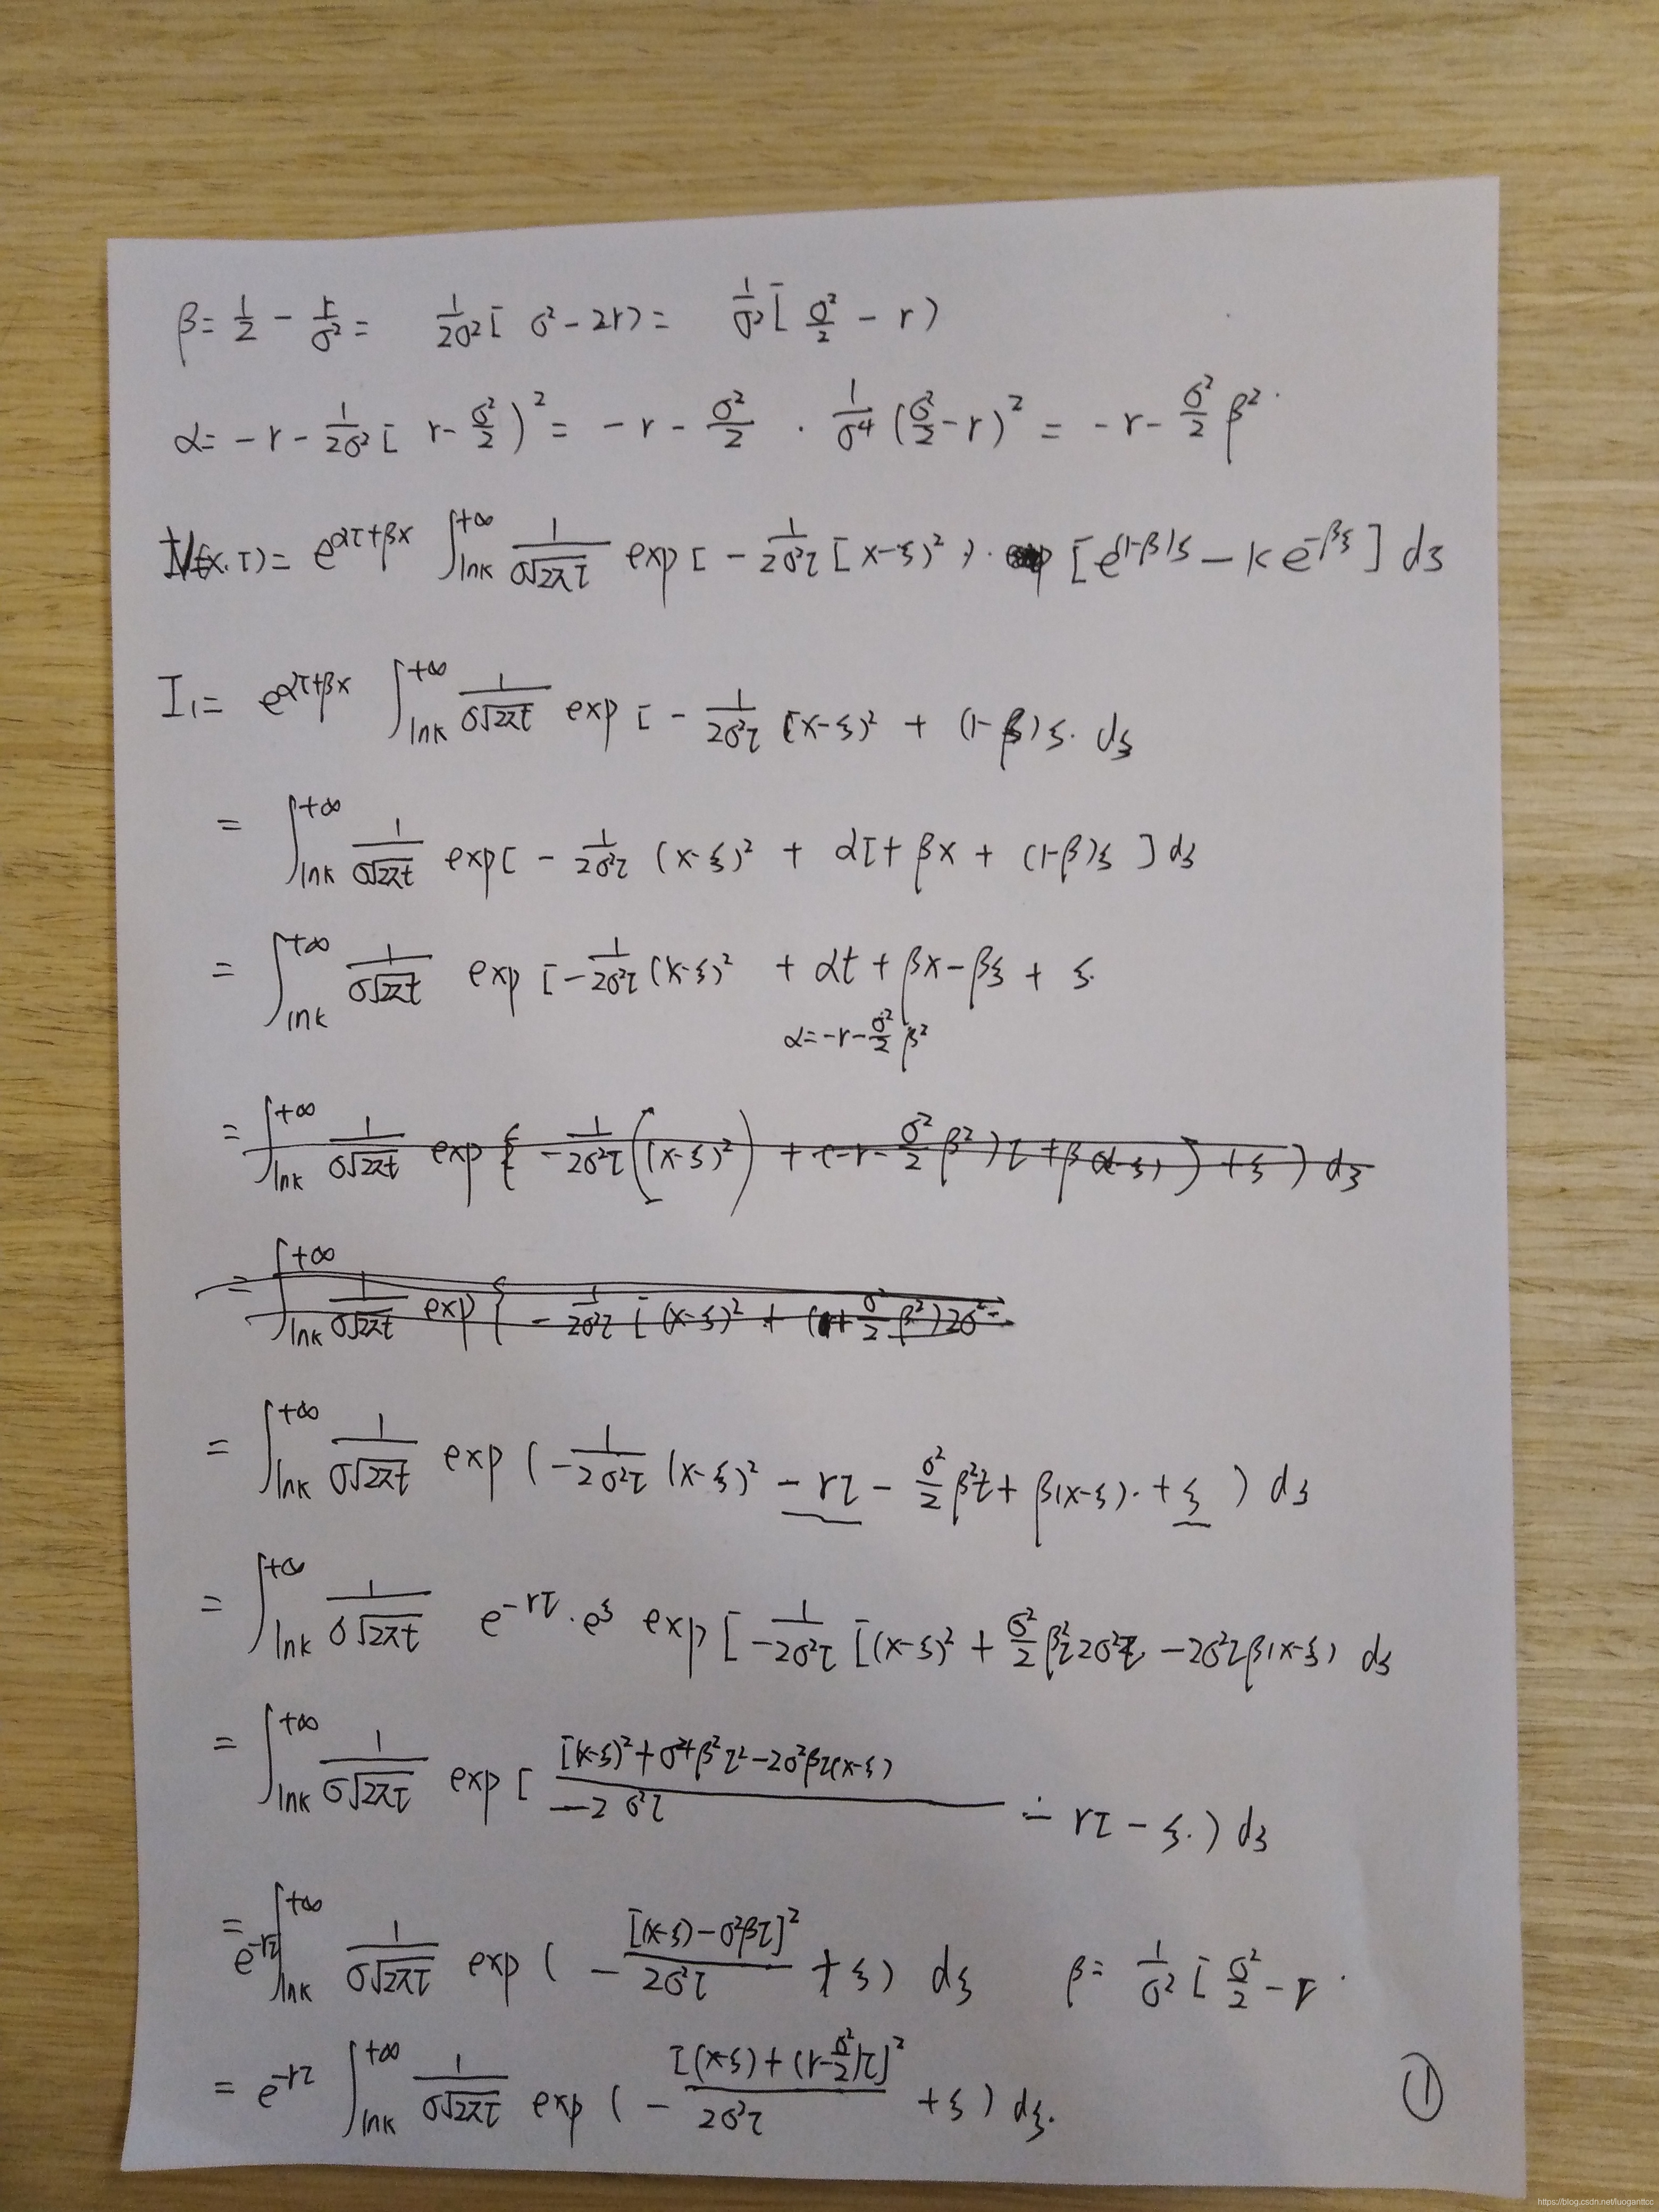 β = 1/2 - r/σ² = 1/2σ² [ σ² - 2r) = 1/σ² [ σ²/2 - r )
α = -r - 1/2σ² [ r - σ²/2 )² = -r - σ²/2 · 1/σ⁴ (σ²/2 - r)² = -r - σ²/2 β² .
V(x,τ) = e^(ατ+βx) ∫_lnk^+∞ 1/σ√2πτ exp [ - 1/2σ²τ [ x-ξ)² ) · [ e^(1-β)ξ - k e^-βξ ] dξ
I₁ = e^(ατ+βx) ∫_lnk^+∞ 1/σ√2πτ exp [ - 1/2σ²τ (x-ξ)² + (1-β)ξ · dξ
= ∫_lnk^+∞ 1/σ√2πt exp [ - 1/2σ²τ (x-ξ)² + ατ + βx + (1-β)ξ ] dξ
= ∫_lnk^+∞ 1/σ√2πt exp [ - 1/2σ²τ (x-ξ)² + αt + βx - βξ + ξ .
α = -r - σ²/2 β²
= ∫_lnk^+∞ 1/σ√2πt exp { - 1/2σ²τ ((x-ξ)²) + (-r - σ²/2 β²)τ + β(x-ξ) ) + ξ ) dξ
= ∫_lnk^+∞ 1/σ√2πt exp { - 1/2σ²τ [ (x-ξ)² + (r + σ²/2 β²) 2σ²
= ∫_lnk^+∞ 1/σ√2πt exp ( - 1/2σ²τ (x-ξ)² - rτ - σ²/2 β²τ + β(x-ξ) · + ξ ) dξ
= ∫_lnk^+∞ 1/σ√2πt e^-rτ · e^ξ exp [ 1/-2σ²τ [(x-ξ)² + σ²/2 β²τ 2σ²τ - 2σ²τβ(x-ξ) dξ
= ∫_lnk^+∞ 1/σ√2πτ exp [ [(x-ξ)² + σ⁴β²τ² - 2σ²βτ(x-ξ) / -2σ²τ - rτ - ξ . ) dξ
= e^-rτ ∫_lnk^+∞ 1/σ√2πτ exp ( - [(x-ξ) - σ²βτ]² / 2σ²τ + ξ ) dξ β = 1/σ² [ σ²/2 - r .
= e^-rτ ∫_lnk^+∞ 1/σ√2πτ exp ( - [(x-ξ) + (r - σ²/2)τ]² / 2σ²τ + ξ ) dξ .
①
https://blog.csdn.net/luoganttcc